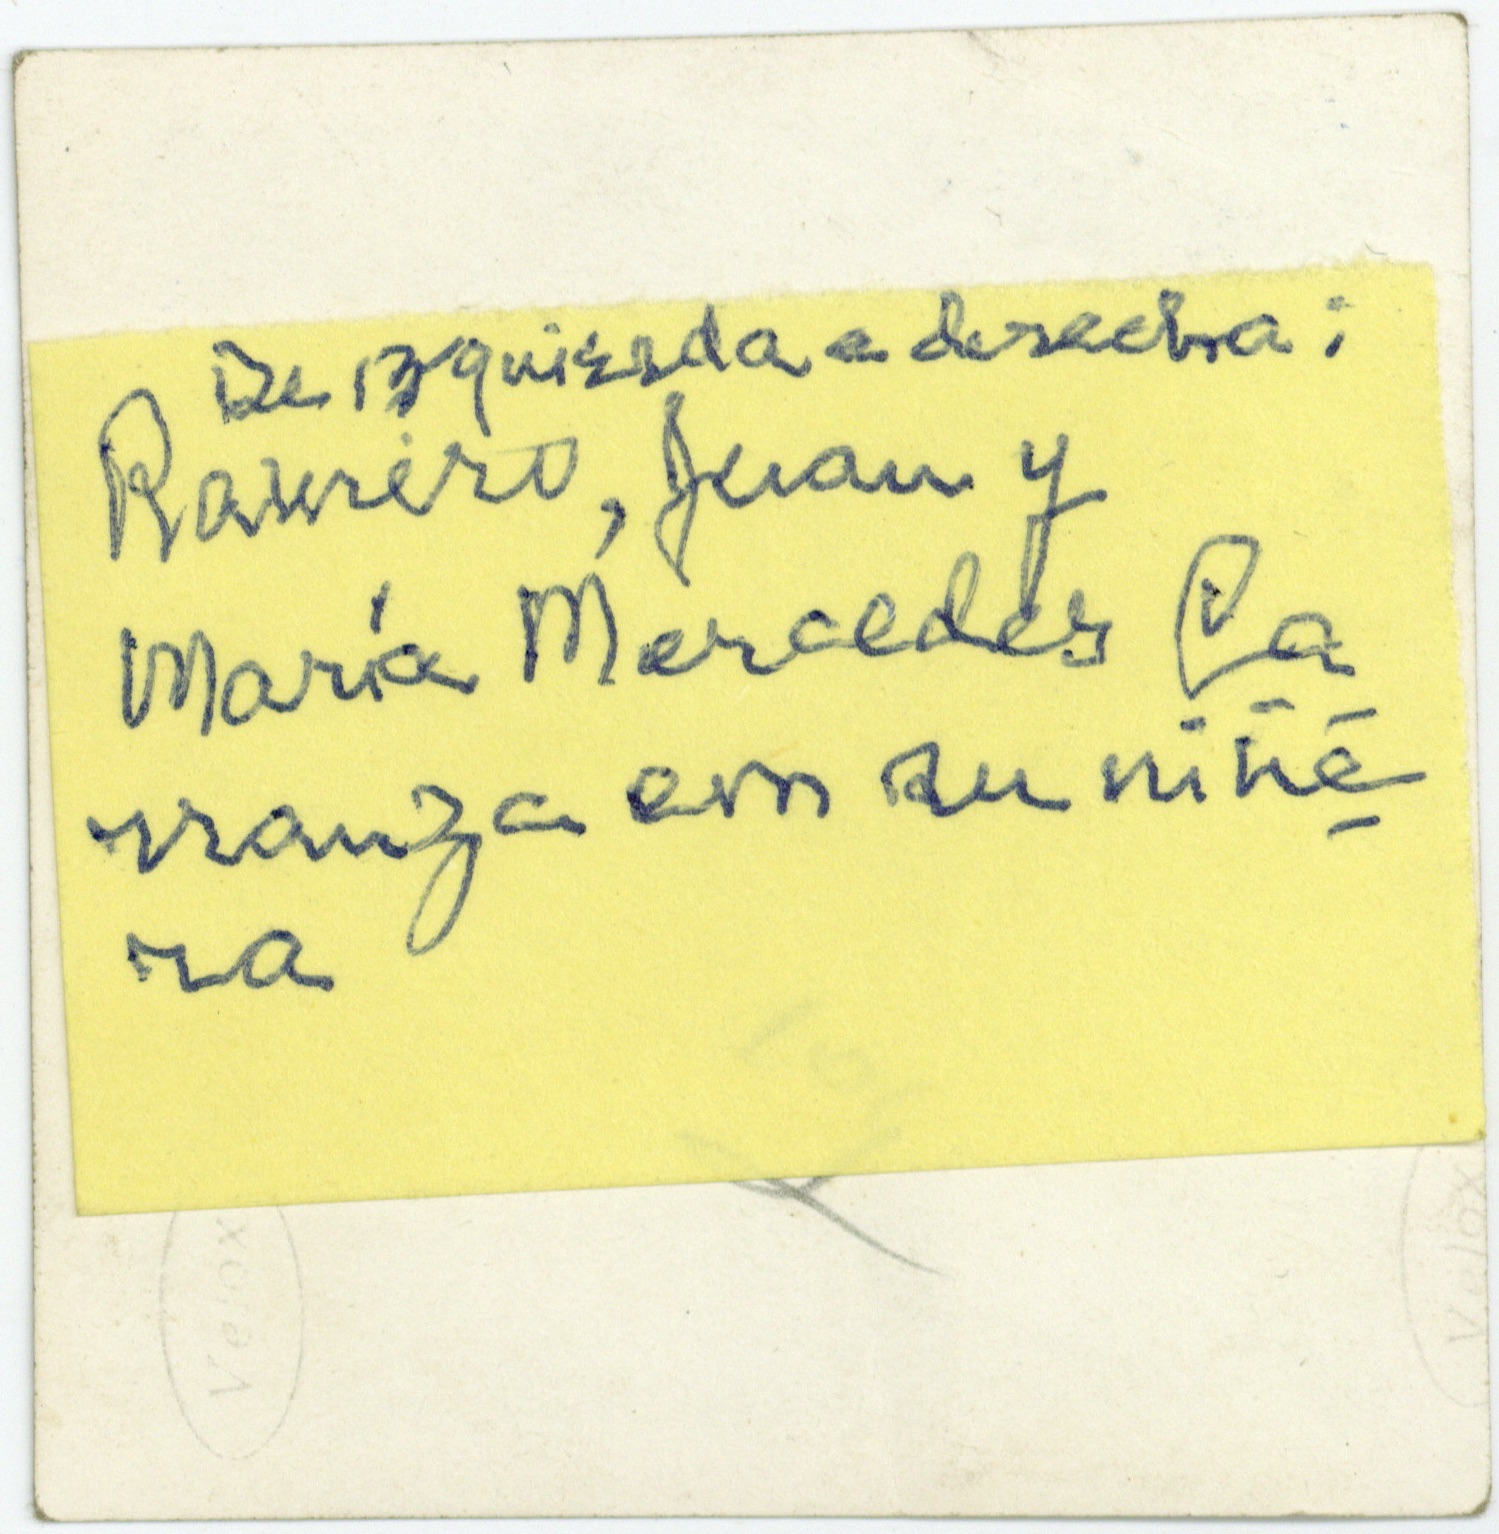 De izquierda a derecha:
Ramiro, Juan y
María Mercedes Ca
rranza con su niñe
ra
Velox
Velox